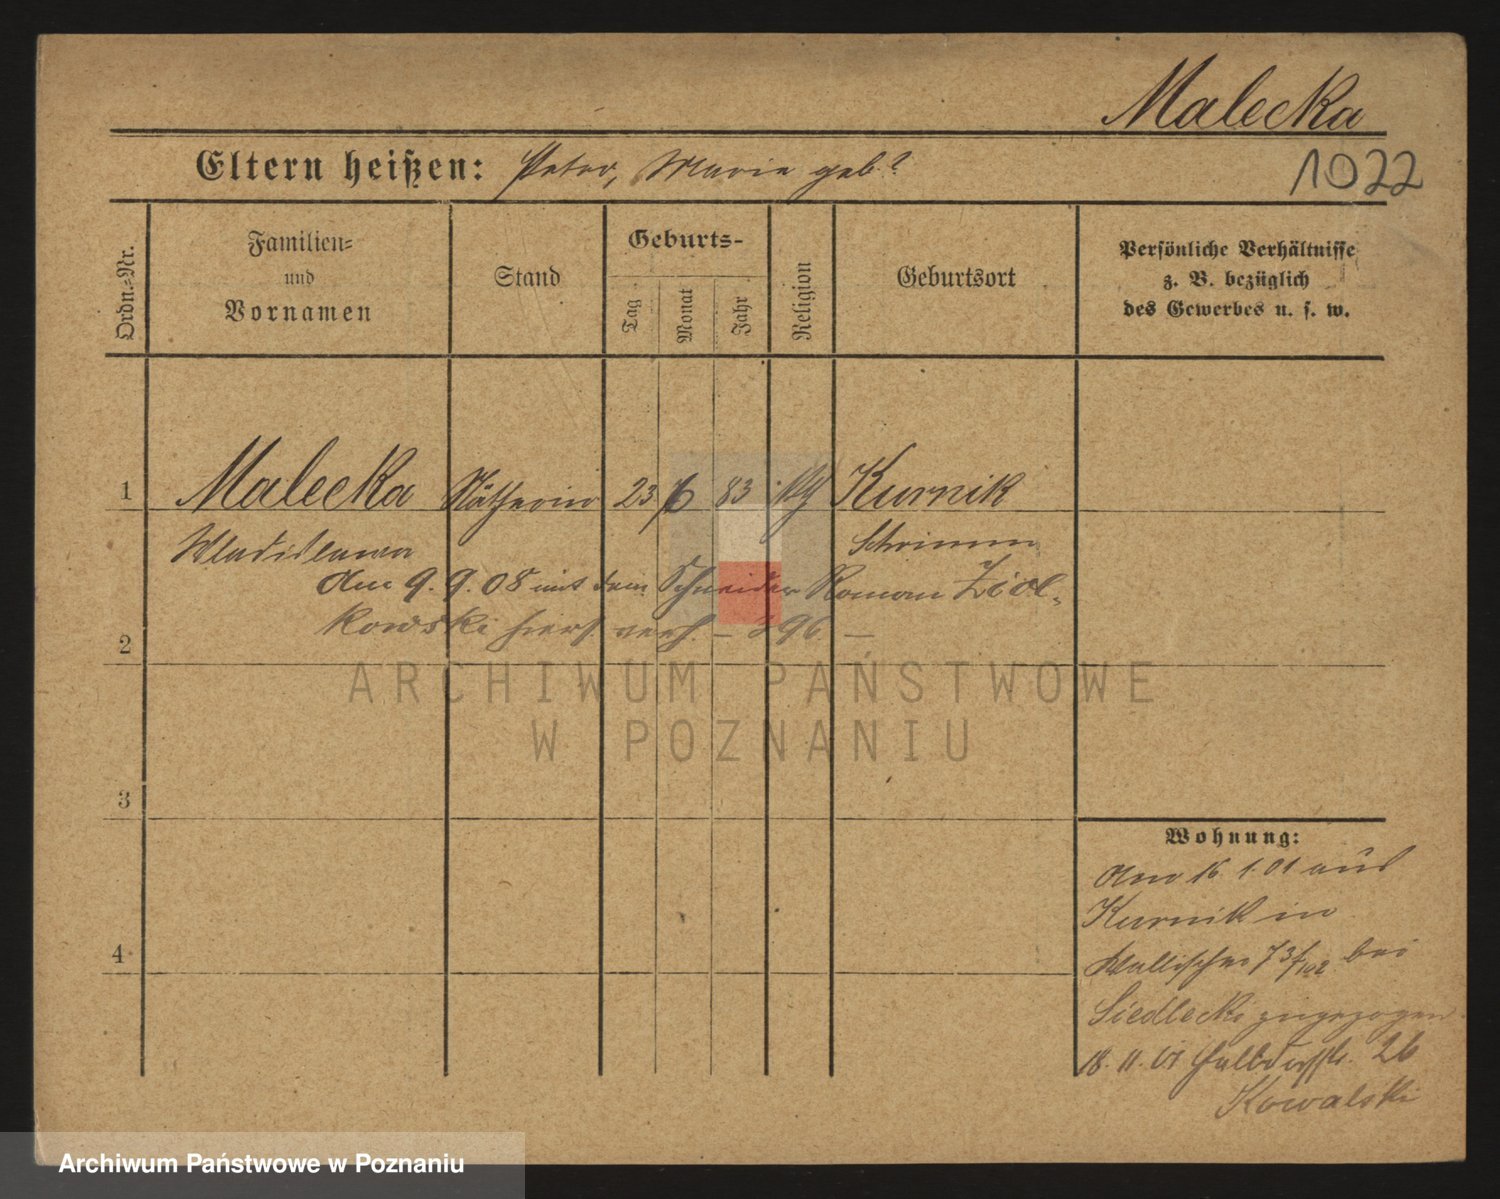 Malecka
Eltern heißen: Peter, Marie geb?
1022
Ordn.-Nr.
Familien-
und
Vornamen
Stand
Geburts-
Tag
Monat
Jahr
Religion
Geburtsort
Persönliche Verhältnisse
z. B. bezüglich
des Gewerbes u. s. w.
1 Malecka Nätherin 23/6 83 Kurnik
Wladislawa Schrimm
Am 9. 9. 08 mit dem Schneider Roman Ziol-
kowski hiers. verh. – 396. –
2
ARCHIWUM PAŃSTWOWE
W POZNANIU
3
Wohnung:
Am 16. 1. 01 aus
Kurnik in
4
Wallischei 73/102 bei
Siedlecki zugezogen
18. 11. 01 Halbdorfstr. 26
Kowalski
Archiwum Państwowe w Poznaniu